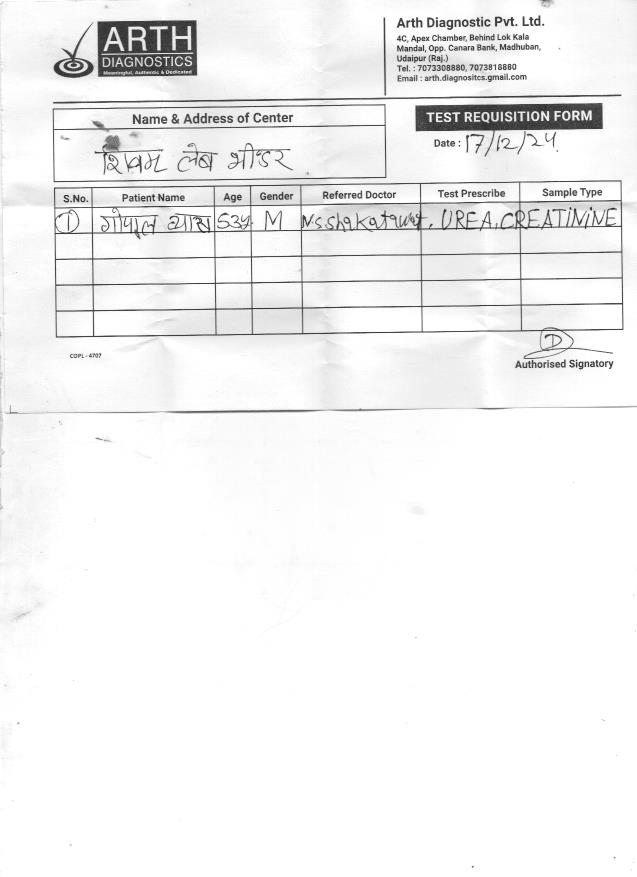 ARTH
DIAGNOSTICS
Meaningful, Authentic & Dedicated
Arth Diagnostic Pvt. Ltd.
4C, Apex Chamber, Behind Lok Kala
Mandal, Opp. Canara Bank, Madhuban,
Udaipur (Raj.)
Tel. : 7073308880, 7073818880
Email : arth.diagnositcs.gmail.com
Name & Address of Center
शिवम लेब भीडर
TEST REQUISITION FORM
Date : 17/12/24
S.No. Patient Name Age Gender Referred Doctor Test Prescribe Sample Type
1 गोपाल व्यास 53y M N.S.Shakatawat, UREA, CREATININE
D
Authorised Signatory
CDPL - 4707